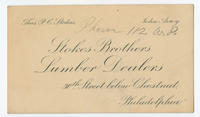 Thos. P. C. Stokes, John
Phone 112
Stokes Brothers
Lumber Dealers
30th Street below Chestnut
Philadelphia